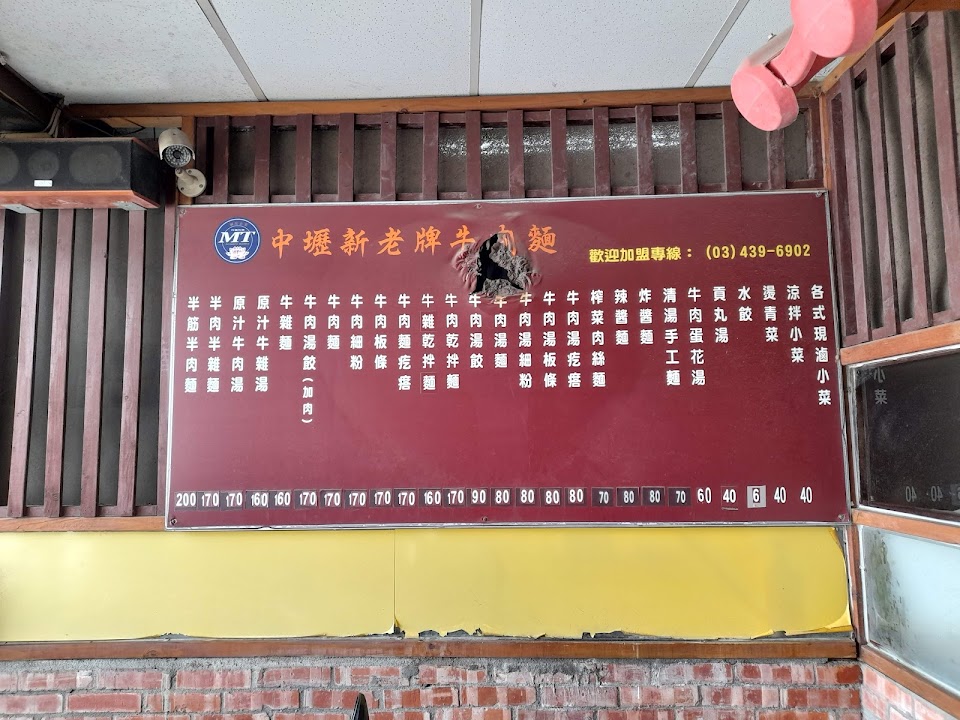 MT
中壢新老牌牛肉麵
歡迎加盟專線：(03)439-6902
半筋半肉麵 200
半肉半雜麵 170
原汁牛肉湯 170
原汁牛雜湯 160
牛雜麵 160
牛肉湯餃(加肉) 170
牛肉麵 170
牛肉細粉 170
牛肉板條 170
牛肉麵疙瘩 170
牛雜乾拌麵 160
牛肉乾拌麵 170
牛肉湯餃 90
牛肉湯麵 80
牛肉湯細粉 80
牛肉湯板條 80
牛肉湯疙瘩 80
榨菜肉絲麵 70
辣醬麵 80
炸醬麵 80
清湯手工麵 70
牛肉蛋花湯 60
貢丸湯 40
水餃 6
燙青菜 40
涼拌小菜 40
各式現滷小菜